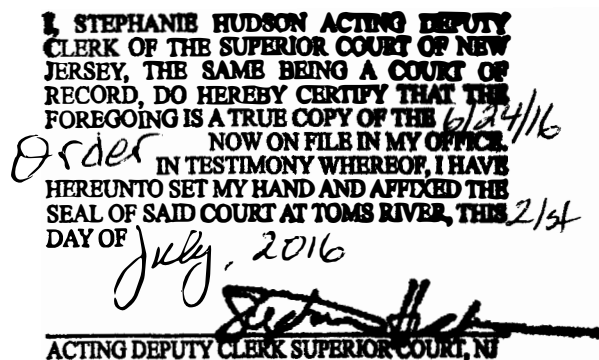 I, STEPHANIE HUDSON ACTING DEPUTY
CLERK OF THE SUPERIOR COURT OF NEW
JERSEY, THE SAME BEING A COURT OF
RECORD, DO HEREBY CERTIFY THAT THE
FOREGOING IS A TRUE COPY OF THE 6/24/16
Order NOW ON FILE IN MY OFFICE.
IN TESTIMONY WHEREOF, I HAVE
HEREUNTO SET MY HAND AND AFFIXED THE
SEAL OF SAID COURT AT TOMS RIVER, THIS 21st
DAY OF July, 2016
ACTING DEPUTY CLERK SUPERIOR COURT, NJ